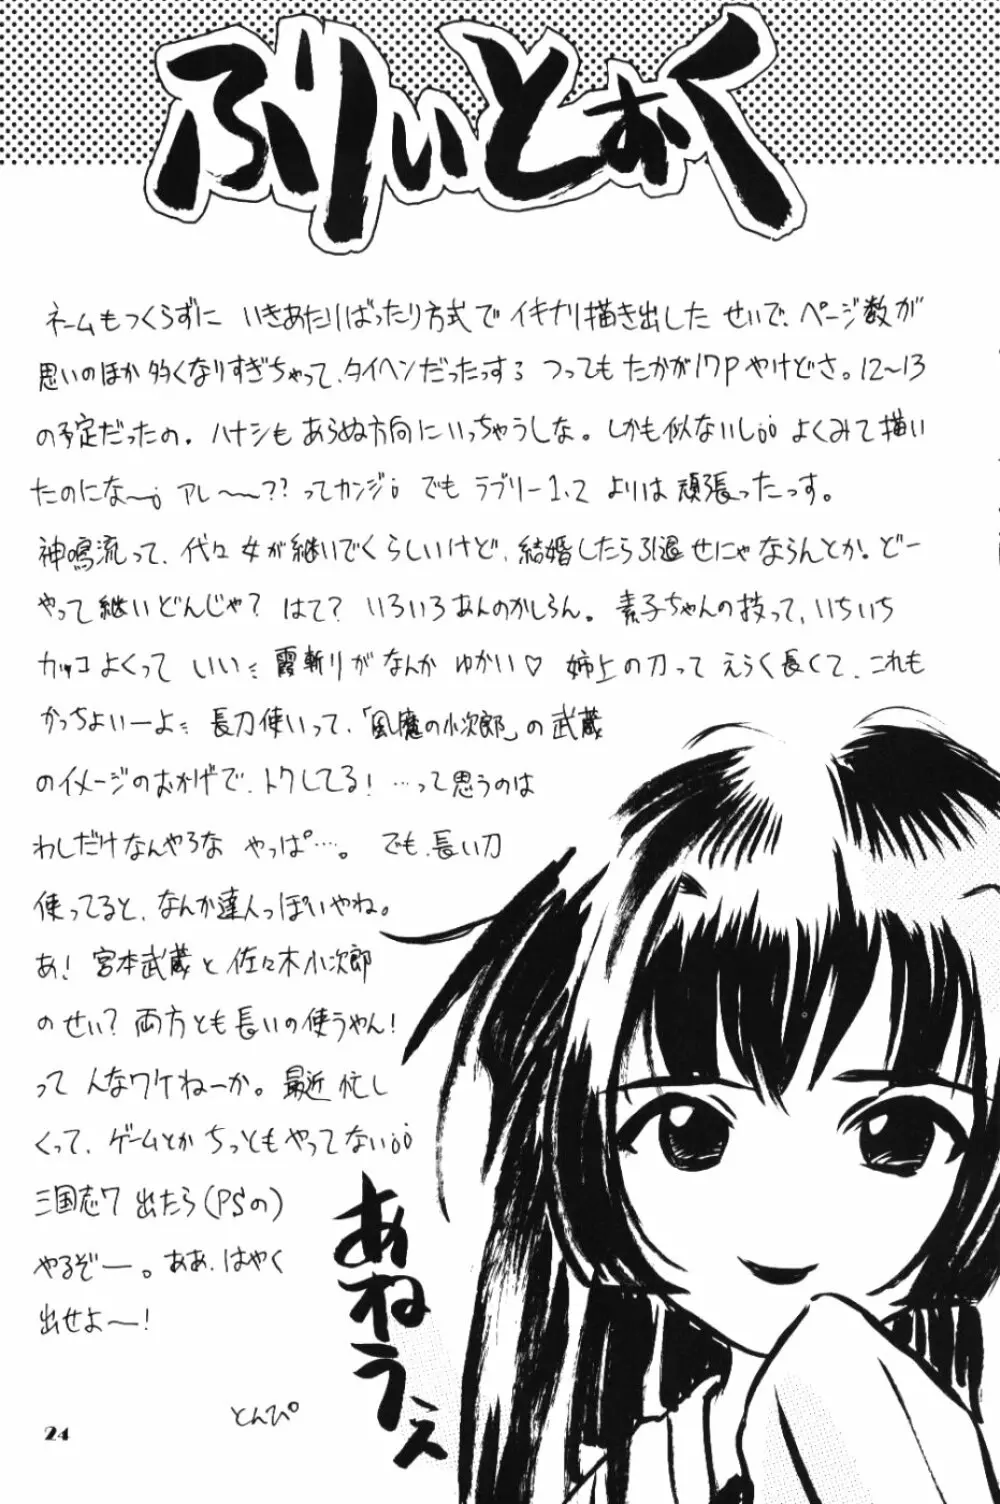 ふりぃとぉく
ネームもつくらずに いきあたりばったり方式で イキナリ描き出した せいで、ページ数が
思いのほか 多くなりすぎちゃって、タイヘンだったっする つっても たかが17P やけどさ。12〜13
の予定だったの。ハナシも あらぬ方向に いっちゃうしな。しかも似ないし¡¡ よくみて 描い
たのにな〜¡ アレ〜〜?? ってカンジ¡ でも ラブリー1、2 よりは 頑張ったっす。
神鳴流って、代々 女が継いでくらしいけど、結婚したら引退 せにゃ ならんとか。どー
やって 継いどんじゃ? はて? いろいろあんのかしらん。素子ちゃんの技って、いちいち
カッコよくって いい〃 霞斬りが なんか ゆかい♡ 姉上の刀って えらく長くて、これも
かっちょいーよ〃 長刀使いって、「風魔の小次郎」の武蔵
のイメージのおかげで、トクしてる! …って思うのは
わしだけなんやろな やっぱ…。でも、長い刀
使ってると、なんか達人っぽいやね。
あ! 宮本武蔵と 佐々木小次郎
のせい? 両方とも長いの使うやん!
って んなワケねーか。最近 忙し
くって、ゲームとか ちっとも やってない¡¡
三国志7 出たら(PSの)
やるぞー。ああ、はやく
出せよ〜!
あねうえ
とんぴ
24